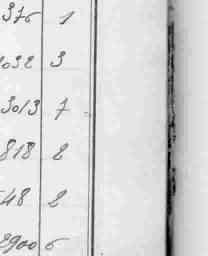 376 1
1032 3
3013 7
818 2
48 2
2900 6